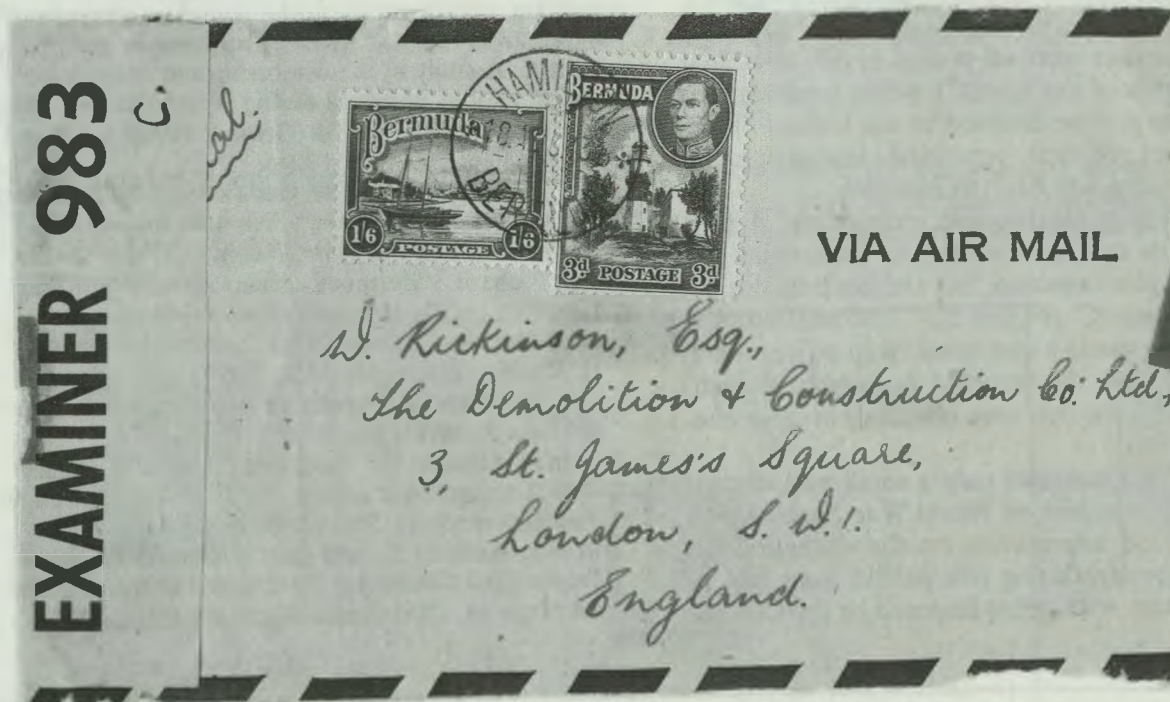 EXAMINER 983
C.
Bermuda
1/6 POSTAGE 1/6
BERMUDA
3d POSTAGE 3d
HAMILTON
VIA AIR MAIL
W. Rickinson, Esq.,
The Demolition & Construction Co. Ltd,
3, St. James's Square,
London, S.W.1.
England.